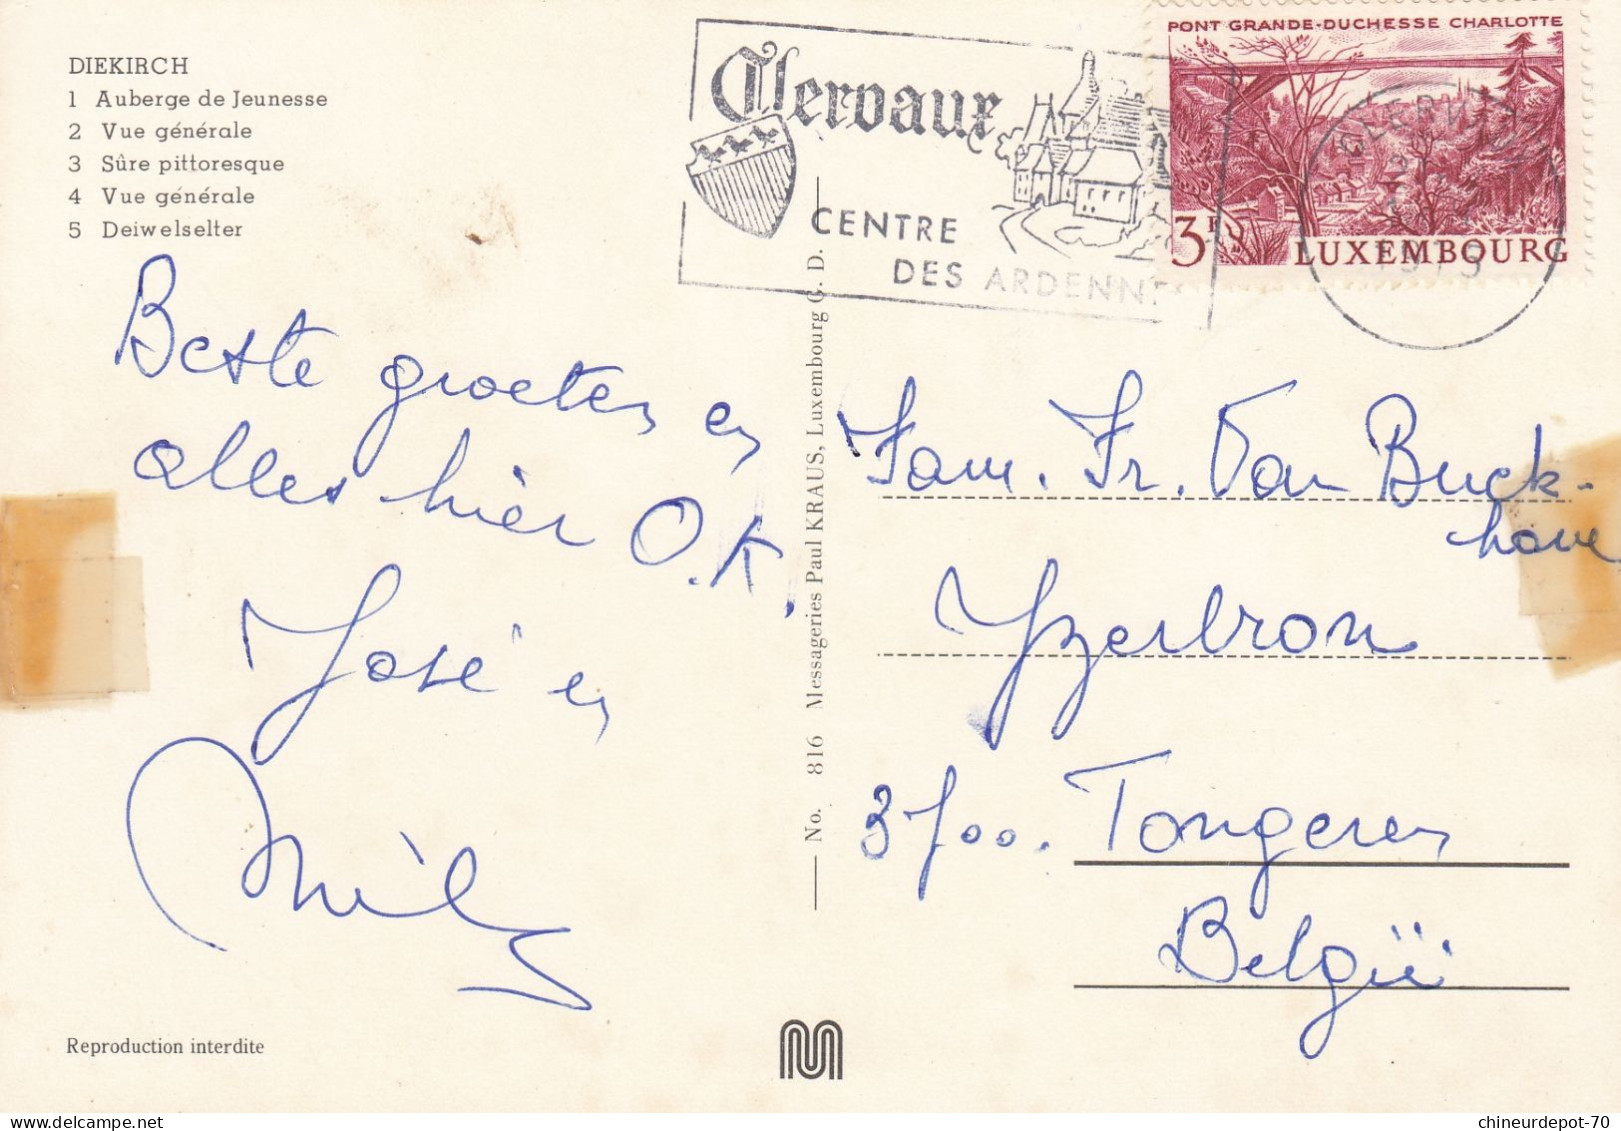 DIEKIRCH
1 Auberge de Jeunesse
2 Vue générale
3 Sûre pittoresque
4 Vue générale
5 Deiwelselter
Clervaux
CENTRE
DES ARDENN
PONT GRANDE-DUCHESSE CHARLOTTE
3F
LUXEMBOURG
Beste groeten en
alles hier O.K.
José en
Reproduction interdite
No. 816 Messageries Paul KRAUS, Luxembourg G. D.
Fam. Fr. Van Buck-
hove
Yzerbron
3700. Tongeren
België
chineurdepot-70